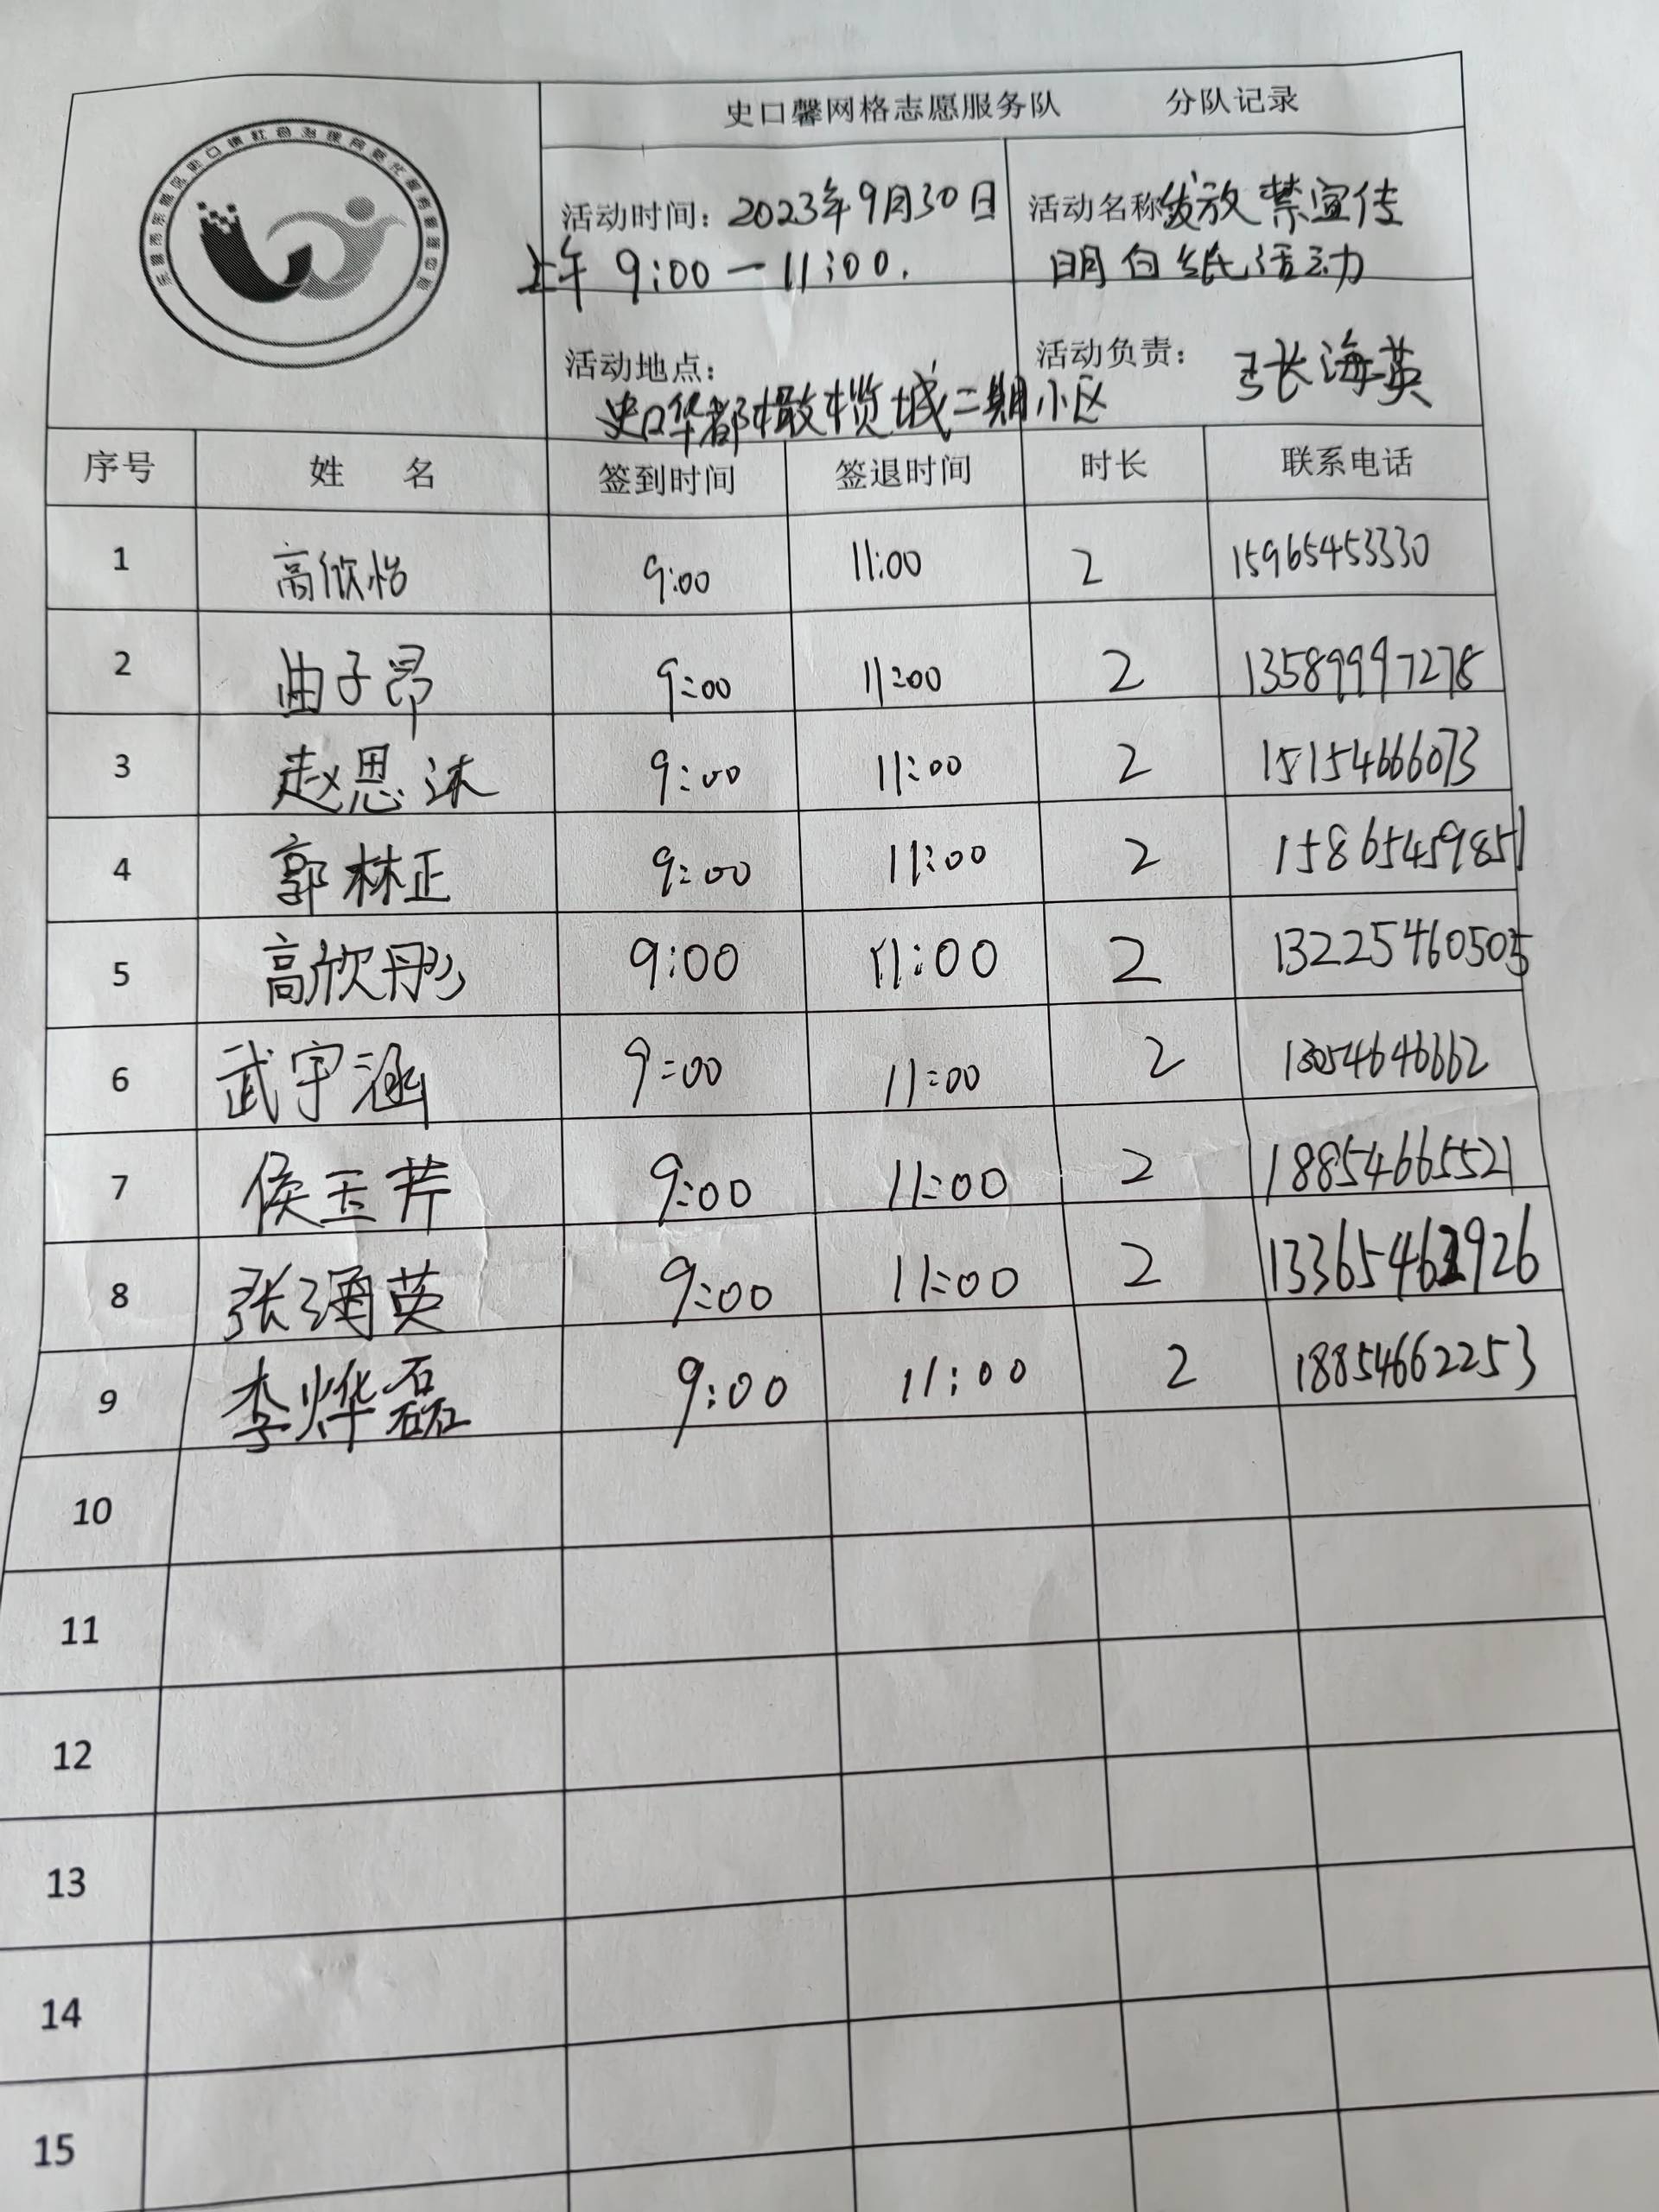 史口馨网格志愿服务队 分队记录
活动时间：2023年9月30日
上午 9:00-11:00.
活动名称 发放禁宣传
明白纸活动
活动地点：
史口华都橄榄城二期小区
活动负责： 张海英
序号 姓 名 签到时间 签退时间 时长 联系电话
1 高欣怡 9:00 11:00 2 15965453330
2 由子昂 9:00 11:00 2 13589997278
3 赵思沐 9:00 11:00 2 15154666073
4 郭林正 9:00 11:00 2 15865459851
5 高欣彤 9:00 11:00 2 13225460505
6 武宇涵 9:00 11:00 2 13054646662
7 侯玉芹 9:00 11:00 2 18854665521
8 张海英 9:00 11:00 2
9 李烨磊 9:00 11:00 2 18854662253
10
11
12
13
14
15